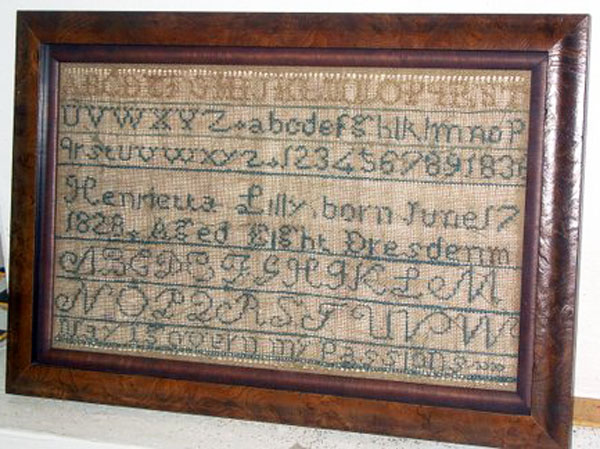 ABCDEFGHIJKLMNOPQRST
UVWXYZ.abcdefghiklmnop
qrstuvwxyz.123456789 1836
Henrietta Lilly, born June 17
1828. Aged Eight Dresden m
ABCDEFGHIKLM
NOPQRSTUVW
May I govern my Passions